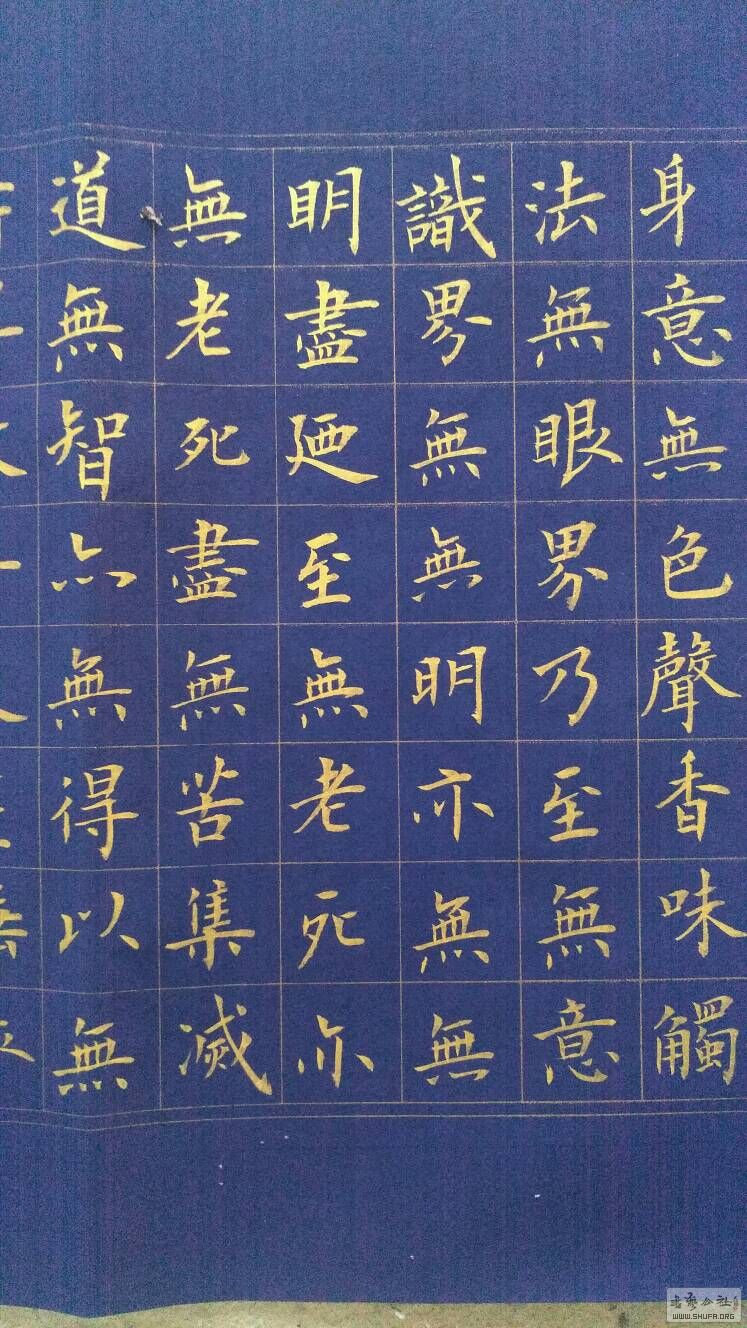 身意無色聲香味觸
法無眼界乃至無意
識界無無明亦無無
明盡廼至無老死亦
無老死盡無苦集滅
道無智亦無得以無
WWW.SHUFA.ORG